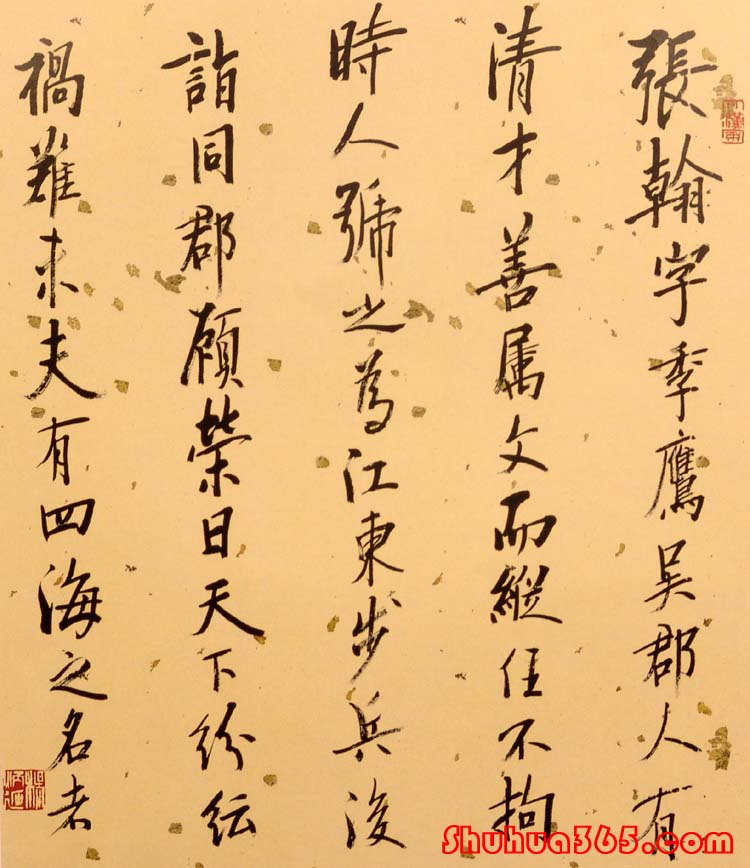 張翰字季鷹吴郡人有
清才善属文而縱任不拘
時人號之為江東步兵後
詣同郡顧榮曰天下紛紜
禍難未夫有四海之名者
Shuhua365.com